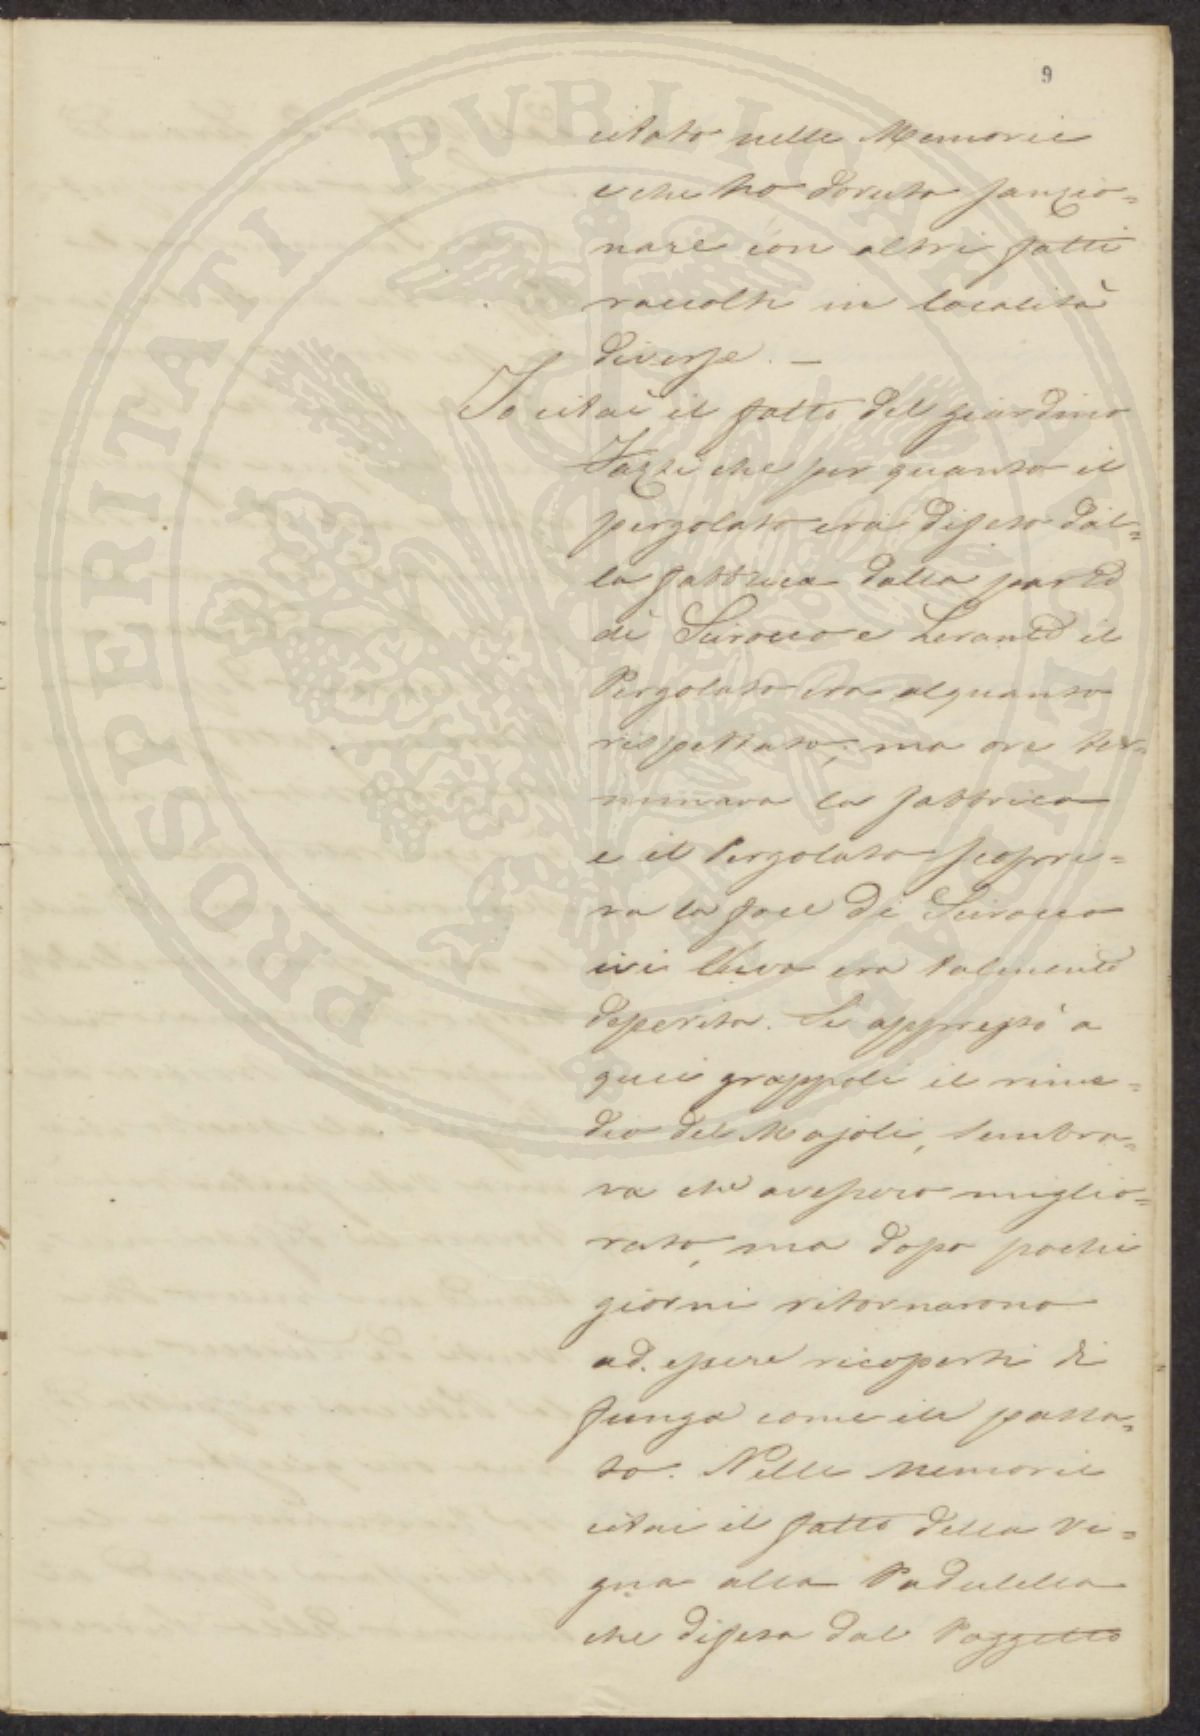 9
citato nelle Memorie
e che ho dovuto sanzio=
nare con altri fatti
raccolti in località
diverse. —
Io citai il fatto del giardino
che per quanto il
pergolato era difeso dal=
la fabbrica dalla parte
di Scirocco e Levante il
Pergolato era alquanto
rispettato, ma ove ter=
minava la fabbrica
e il Pergolato scopri=
va la face di Scirocco
ivi l'Uva era talmente
deperita. Si appressò a
quei grappoli il rime=
dio del Majoli, sembra=
va che avessero miglio=
rato, ma dopo pochi
giorni ritornarono
ad essere ricoperti di
funga come il passa=
to. Nelle Memorie
citai il fatto della Vi=
gna alla Padulella
che difesa dal Poggetto
PROSPERITATI PUBLICAE AUGENDAE